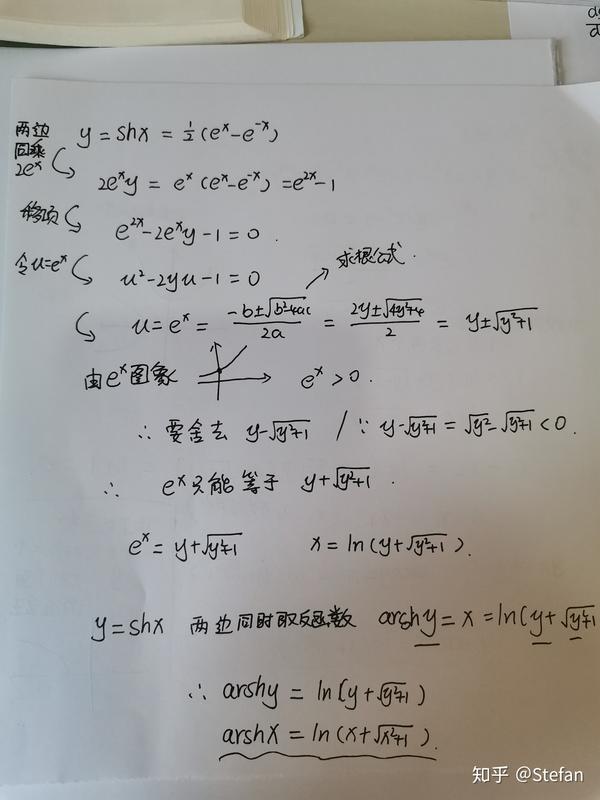 两边同乘2eˣ
y = shx = ½(eˣ-e⁻ˣ)
2eˣy = eˣ(eˣ-e⁻ˣ) = e²ˣ-1
移项
e²ˣ-2eˣy-1=0.
令u=eˣ
u²-2yu-1=0
求根公式.
u=eˣ = (-b±√(b²-4ac))/2a = (2y±√(4y²+4))/2 = y±√(y²+1)
由eˣ图象 eˣ>0.
∴ 要舍去 y-√(y²+1) / ∵ y-√(y²+1) = √y²-√(y²+1) <0.
∴ eˣ只能等于 y+√(y²+1).
eˣ = y+√(y²+1) x = ln(y+√(y²+1)).
y=shx 两边同时取反函数 arshy = x = ln(y+√(y²+1)
∴ arshy = ln(y+√(y²+1))
arshx = ln(x+√(x²+1)).
知乎 @Stefan